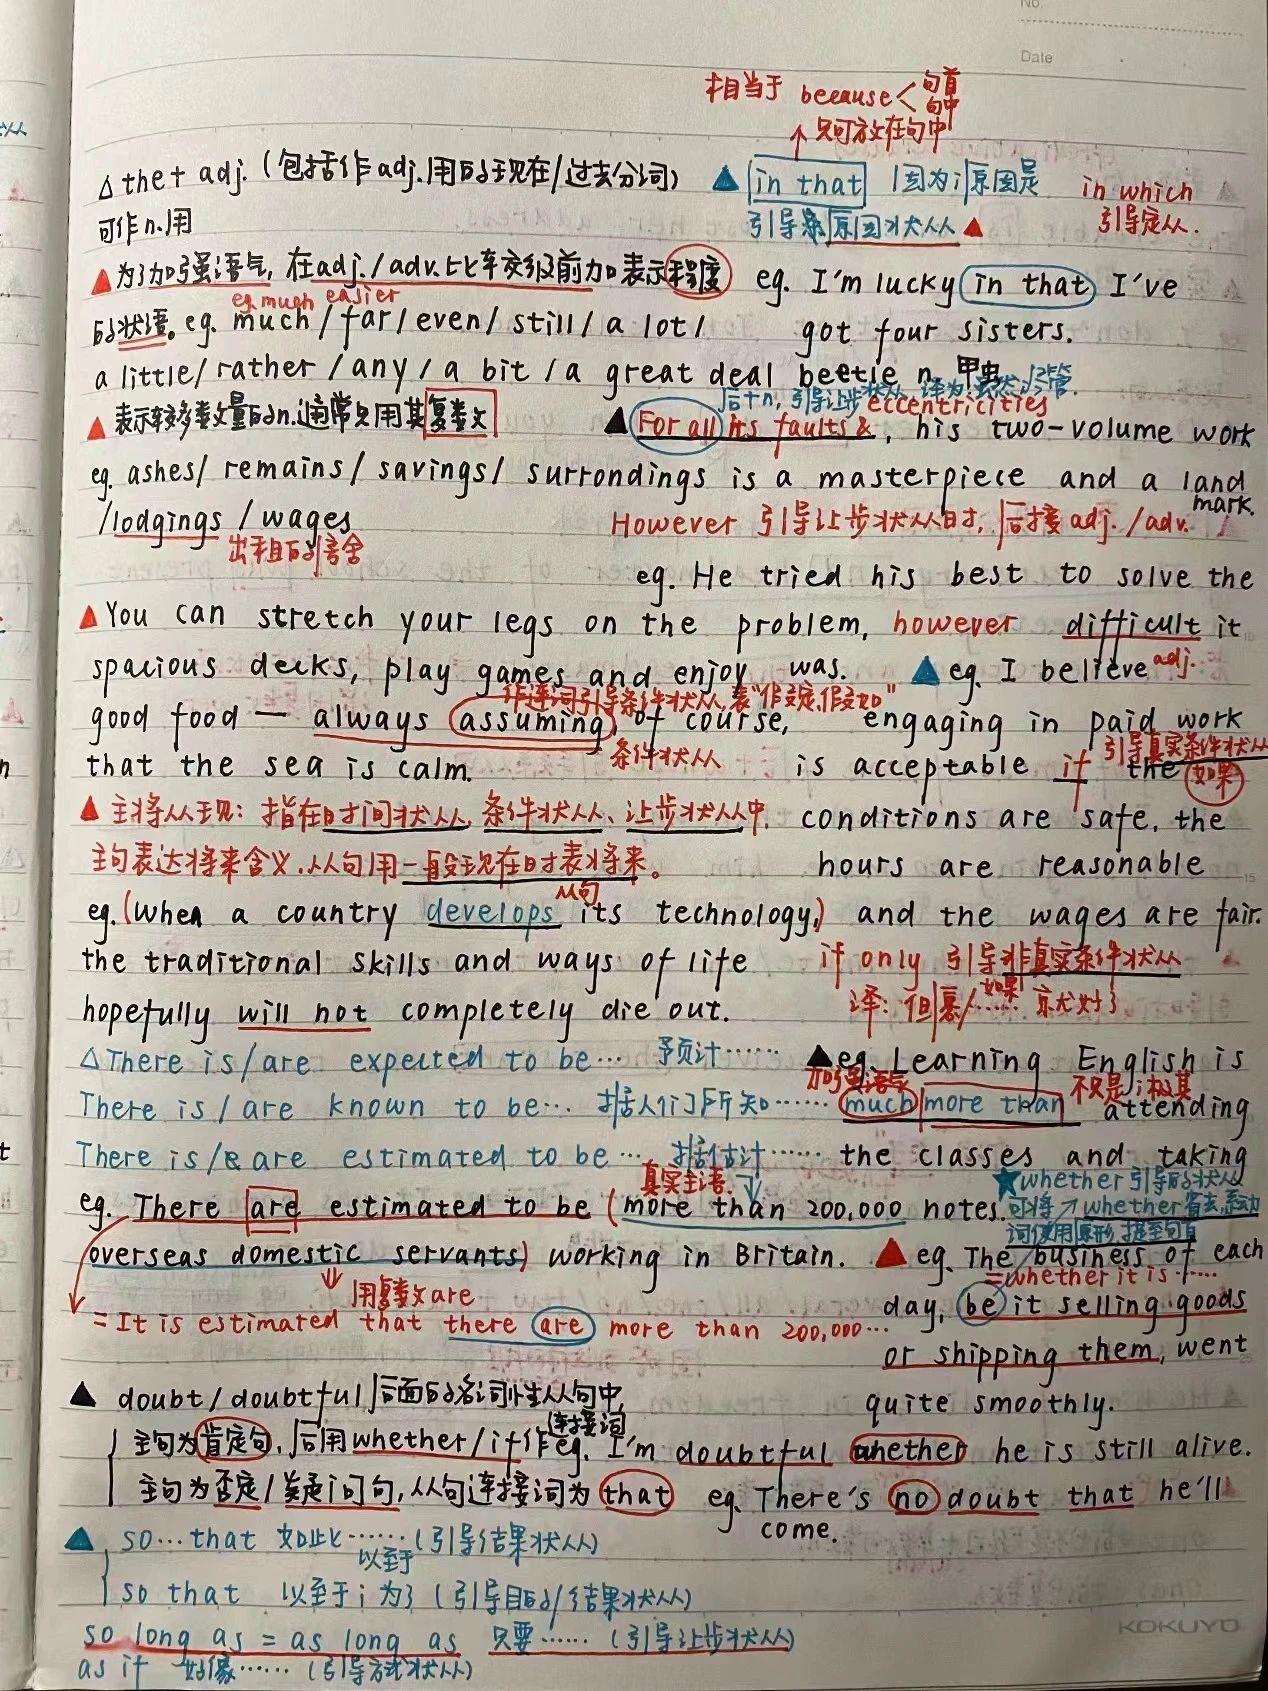 No.
Date
相当于 beeause < 句首
句中
只可放在句中
△ the + adj.(包括作 adj.用的现在/过去分词)
可作 n.用
▲ in that 因为;原因是
引导原因状从 ▲
in which
引导定从.
▲ 为了加强语气, 在adj./adv.比较级前加表示程度
eg. much easier
的状语。eg. much/far/even/still/a lot/
a little/rather/any/a bit/a great deal
eg. I'm lucky in that I've
got four sisters.
beetle n. 甲虫
后+n, 引导让步状从, 译为:虽然,尽管.
▲ 表示较多数量的n.通常只用其复数
eg. ashes/ remains/ savings/ surrondings
/lodgings / wages
出租的宿舍
eccentricities
▲ For all its faults & , his two-volume work
is a masterpiece and a land
mark.
However 引导让步状从时, 后接 adj. /adv.
eg. He tried his best to solve the
problem, however difficult it
was.
adj.
▲ You can stretch your legs on the
spacious decks, play games and enjoy
作连词引导条件状从,表"假定,假如"
good food — always assuming, of course,
条件状从
that the sea is calm.
▲ eg. I believe
engaging in paid work
引导真实条件状从
is acceptable if the
如果
conditions are safe, the
hours are reasonable
and the wages are fair.
▲ 主将从现: 指在时间状从, 条件状从、让步状从中,
主句表达将来含义,从句用一般现在时表将来。
从句
eg.(When a country develops its technology,)
the traditional skills and ways of life
hopefully will not completely die out.
if only 引导非真实条件状从
译: 但愿/如果…… 就好了
△ There is/are expected to be… 预计……
There is/are known to be… 据人们所知……
There is/are estimated to be… 据估计……
真实主语
eg. There are estimated to be (more than 200,000
overseas domestic servants) working in Britain.
用复数are
= It is estimated that there are more than 200,000…
▲ eg. Learning English is
加强语气 不只是;极其
much more than attending
the classes and taking
notes.
★ whether 引导的状从
可将 whether省去,系动
词使用原形,提至句首
▲ eg. The business of each
= whether it is ……
day, be it selling goods
or shipping them, went
quite smoothly.
▲ doubt/doubtful后面的名词性从句中,
主句为肯定句, 后用whether/if作连接词
eg. I'm doubtful whether he is still alive.
主句为否定/疑问句,从句连接词为 that
eg. There's no doubt that he'll
come.
▲ so…that 如此……以至于 (引导结果状从)
so that 以至于;为了 (引导目的/结果状从)
so long as = as long as 只要…… (引导让步状从)
as if 好像…… (引导方式状从)
KOKUYO